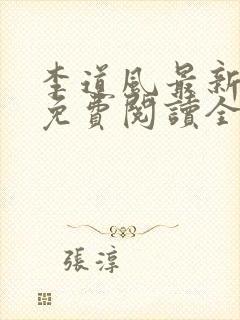 李道風最新
免費閱讀全
張淳